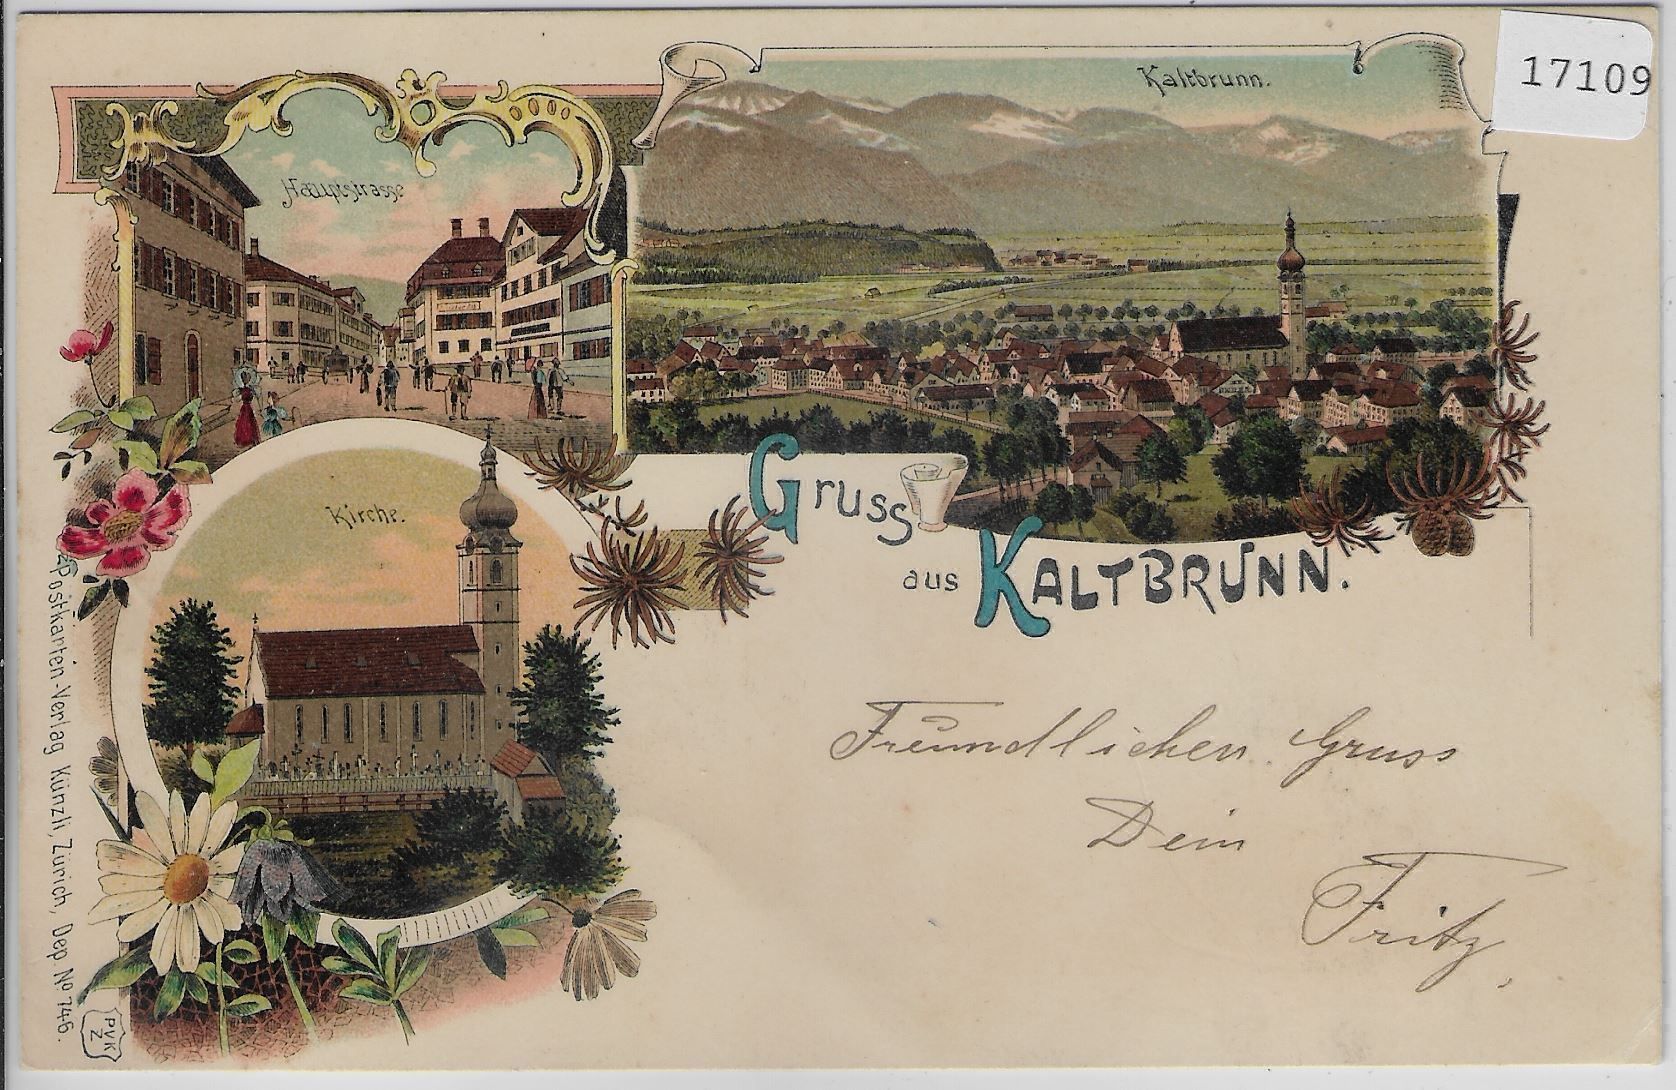 17109
Kaltbrunn.
Hauptstrasse
Kirche.
Gruss
aus Kaltbrunn.
Freundlichen Gruss
Dein
Fritz,
Postkarten-Verlag Künzli, Zürich, Dep. No 746.
PVK
Z